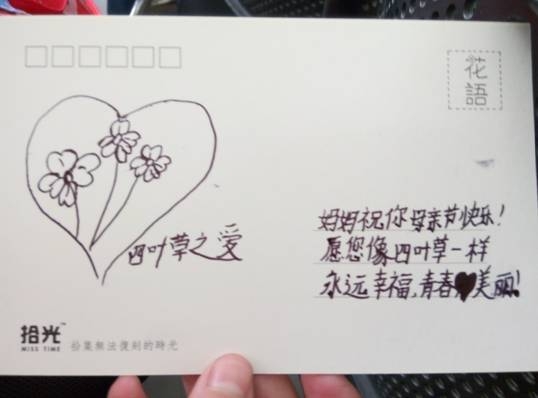 花
語
四叶草之爱
妈妈祝你母亲节快乐!
愿您像四叶草一样
永远幸福,青春美丽!
拾光™
MISS TIME
拾集無法復刻的時光